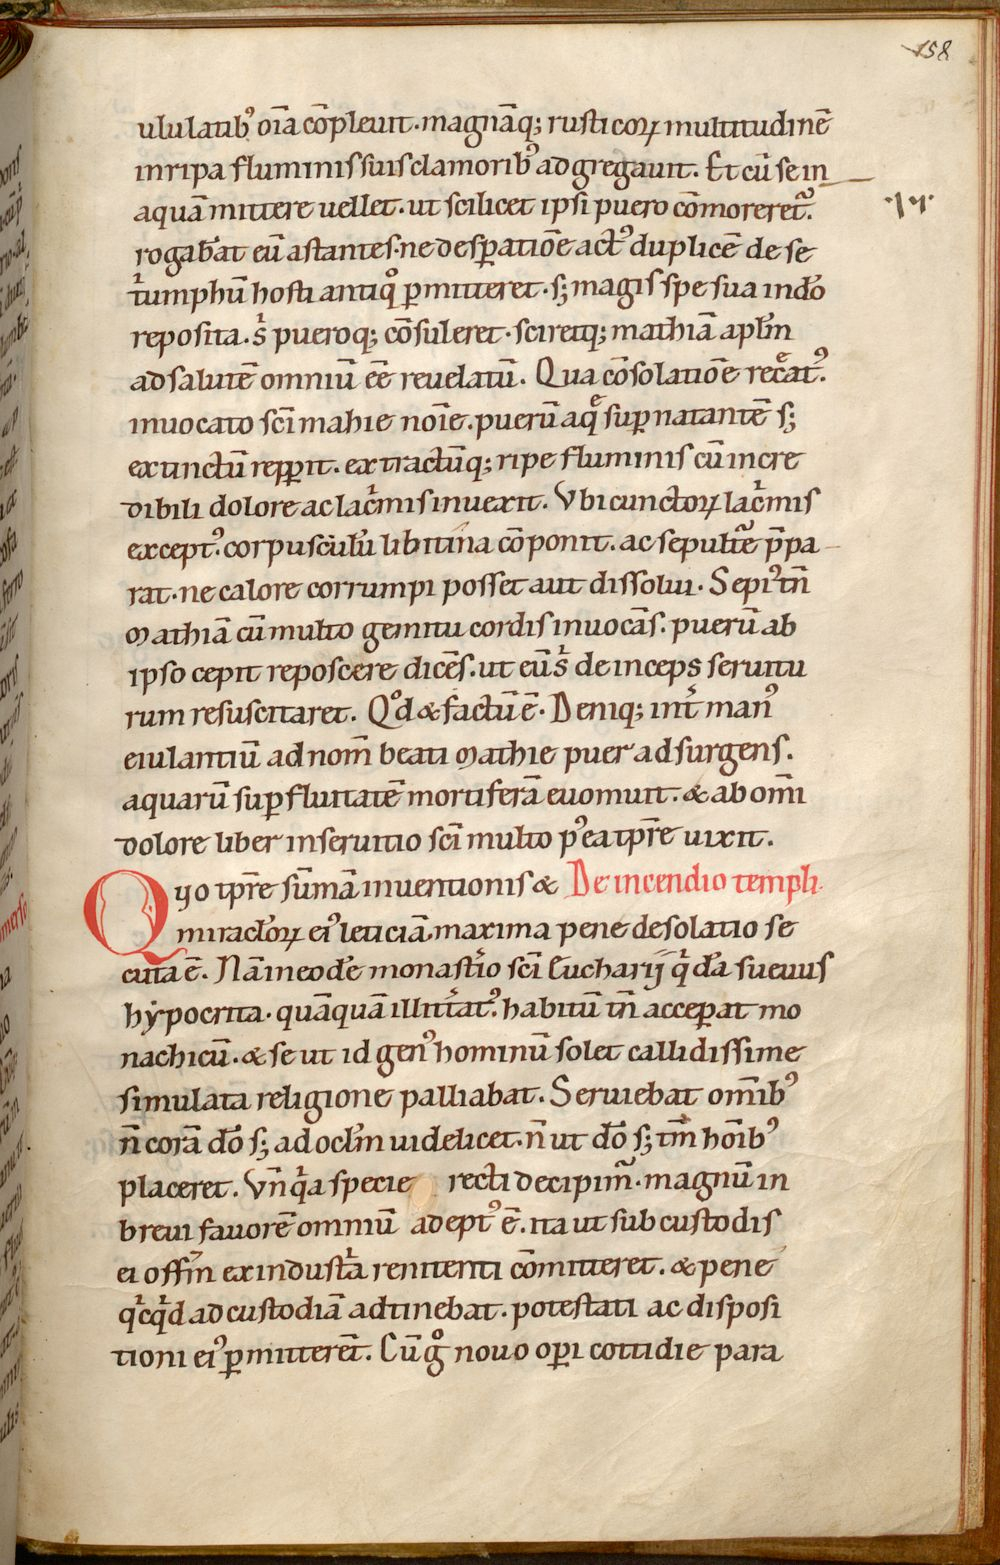 158
ululatib᾽ oı̄a cōpleuit. magnāq; rusticoꝝ multitudinē
in ripa fluminis suis clamorib᾽ adgregauit. Et cū se in
aquā mittere uellet. ut scilicet ipsi puero cōmoreret᷑.
rogabāt eū astantes. ne desꝑatiōe act᾽ duplicē de se
tͥumphū hosti antiqͦ ꝑmitteret. s; magis spe sua in dō
reposita. sͥ pueroq; cōsuleret. sciretq; mathiā aplm̄
ad salutē omniū eē reuelatū. Qua cōsolatiōe recͤat᾽.
inuocato scī mahie noīe. puerū aqͤ suꝑnatantē s;
extinctū repꝑit. extractūq; ripe fluminis cū incre
dibili dolore ac lacͥmis inuexit. Vbi cunctoꝝ lacͥmis
except᾽. corpusculū libitina cōponit. ac sepultᷓe p̄pa
rat. ne calore corrumpi posset aut dissolui. Sepi᾽ tn̄
Mathiā cū multo gemitu cordis inuocās. puerū ab
ipso cepit reposcere dicēs. ut eū sͥ deinceps seruitu
rum resuscitaret. Qͦd & factū ē. Deniq; int̄ man᾽
eiulantiū ad nom̄ beati Mathie puer adsurgens.
aquarū suꝑfluitatē mortiferā euomuit. & ab om̄i
dolore liber in seruitio scī multo p᾽ea tp̄re uixit.
Qvo tp̄re sūmā inuentionis & De incendio templi.
miraculoꝝ ei᾽ leticiā. maxima pene desolatio se
cuta ē. Nā in eodē monastͥio scī Eucharij qͥdā sueuus
hẏpocrita. quāquā illittͥat᾽. habitū tn̄ acceꝑat mo
nachicū. & se ut id gen᾽ hominū solet callidissime
simulata religione palliabat. Seruiebat om̄ib᾽
n̄ corā dō s; ad oclm̄ uidelicet. n̄ ut dō s; tm̄ hoīb᾽
placeret. Vn̄ qͥa specie recti decipim᷑. magnū in
breui fauorē omniū adept᾽ ē. ita ut sub custodis
ei offm̄ ex industͥa renitenti cōmitteret. & pene
qͥcqͥd ad custodiā adtinebat. potestati ac disposi
tioni ei᾽ ꝑmitteret̄. Cū gͦ nouo oꝑi cottidie para